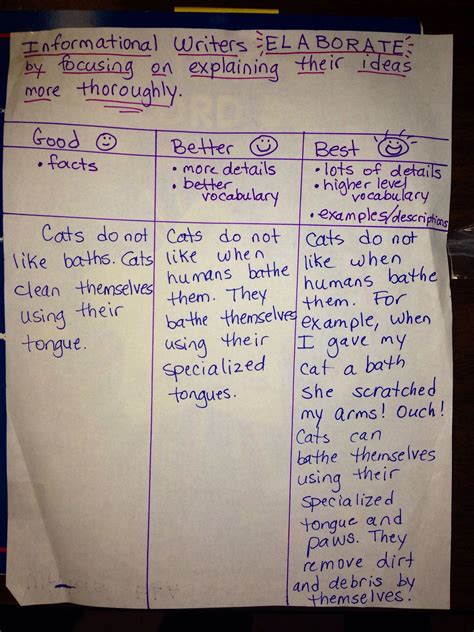 Informational Writers ELABORATE
by focusing on explaining their ideas
more thoroughly.
Good
• facts
Cats do not
like baths. Cats
clean themselves
using their
tongue.
Better
• more details
• better
vocabulary
Cats do not
like when
humans bathe
them. They
bathe themselves
using their
specialized
tongues.
Best
• lots of details
• higher level
vocabulary
• examples/descriptions
Cats do not
like when
humans bathe
them. For
example, when
I gave my
cat a bath
she scratched
my arms! Ouch!
Cats can
bathe themselves
using their
specialized
tongue and
paws. They
remove dirt
and debris by
themselves.